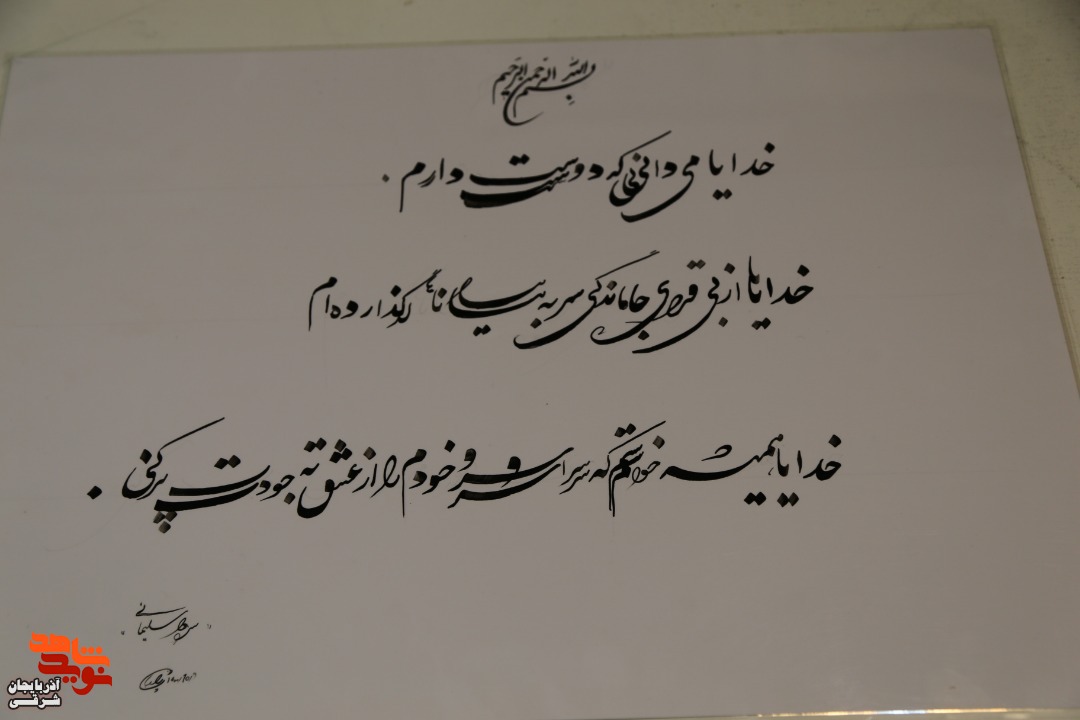 بسم الله الرحمن الرحیم
خدایا می دانی که دوست دارم .
خدایا از بی قراری جاماندگی سر به بیابانها گذارده ام
خدایا همیشه خواستم که سراسر وجودم را از عشق به خودت پر کنی .
"سردار سلیمانی"
نوید شاهد
آذربایجان
شرقی